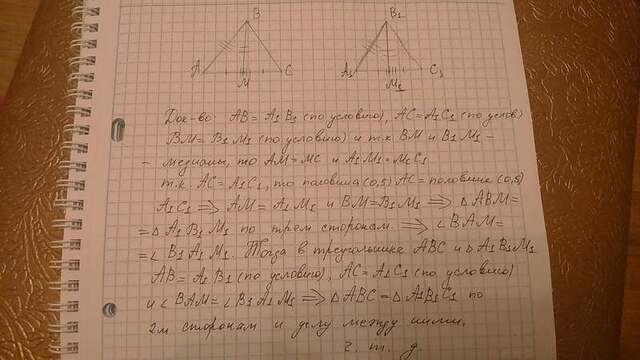 B
B₁
A
M
C
A₁
M₁
C₁
Док-во: AB = A₁B₁ (по условию), AC = A₁C₁ (по услов)
BM = B₁M₁ (по условию) и т.к BM и B₁M₁ -
- медианы, то AM = MC и A₁M₁ = M₁C₁
т.к AC = A₁C₁, то половина (0,5) AC = половине (0,5)
A₁C₁ ⟹ AM = A₁M₁ и BM = B₁M₁ ⟹ △ABM =
= △A₁B₁M₁ по трем сторонам. ⟹ ∠BAM =
= ∠B₁A₁M₁. Тогда в треугольнике ABC и △A₁B₁M₁
AB = A₁B₁ (по условию), AC = A₁C₁ (по условию)
и ∠BAM = ∠B₁A₁M₁ ⟹ △ABC = △A₁B₁C₁ по
2м сторонам и углу между ними.
ч. т. д.